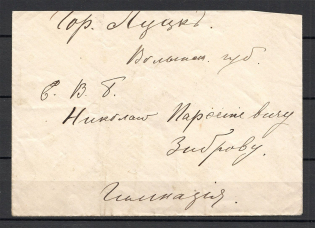 Гор. Луцкъ.
Волынск. губ.
Е. В. Б.
Николаю Парѳеніевичу
Зиброву.
Гимназія.